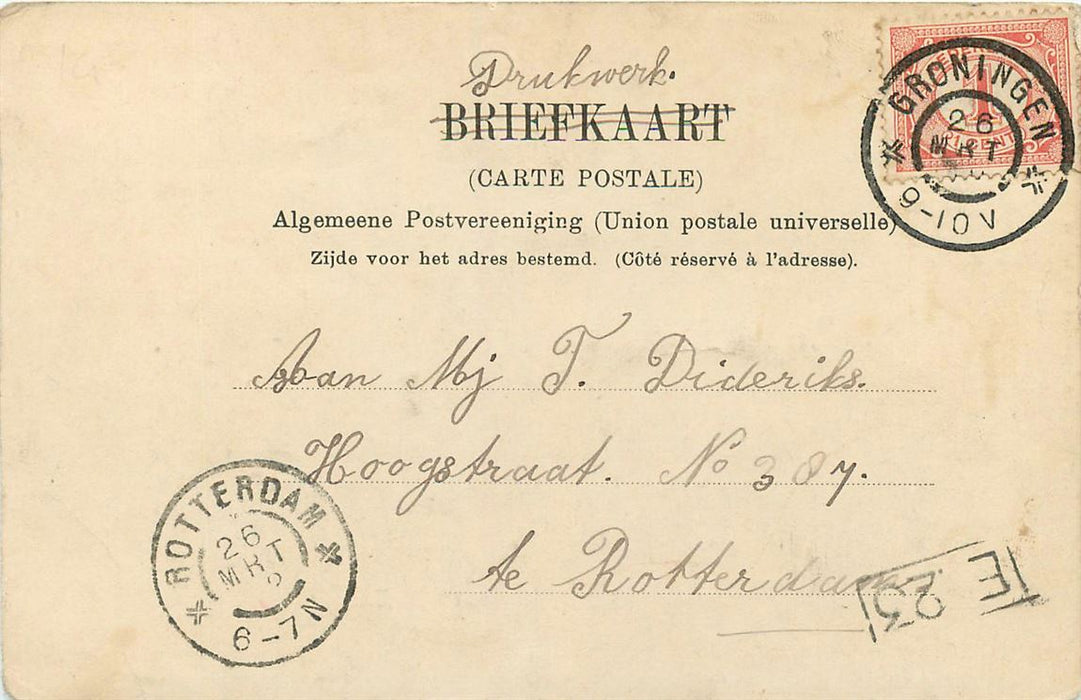 Drukwerk.
BRIEFKAART
(CARTE POSTALE)
Algemeene Postvereeniging (Union postale universelle)
Zijde voor het adres bestemd. (Côté réservé à l'adresse).
Aan Mj T. Dideriks.
Hoogstraat. No 387.
te Rotterdam
GRONINGEN
26
MRT
9-10V
1
CENT
ROTTERDAM
26
MRT
6-7N
TE
23